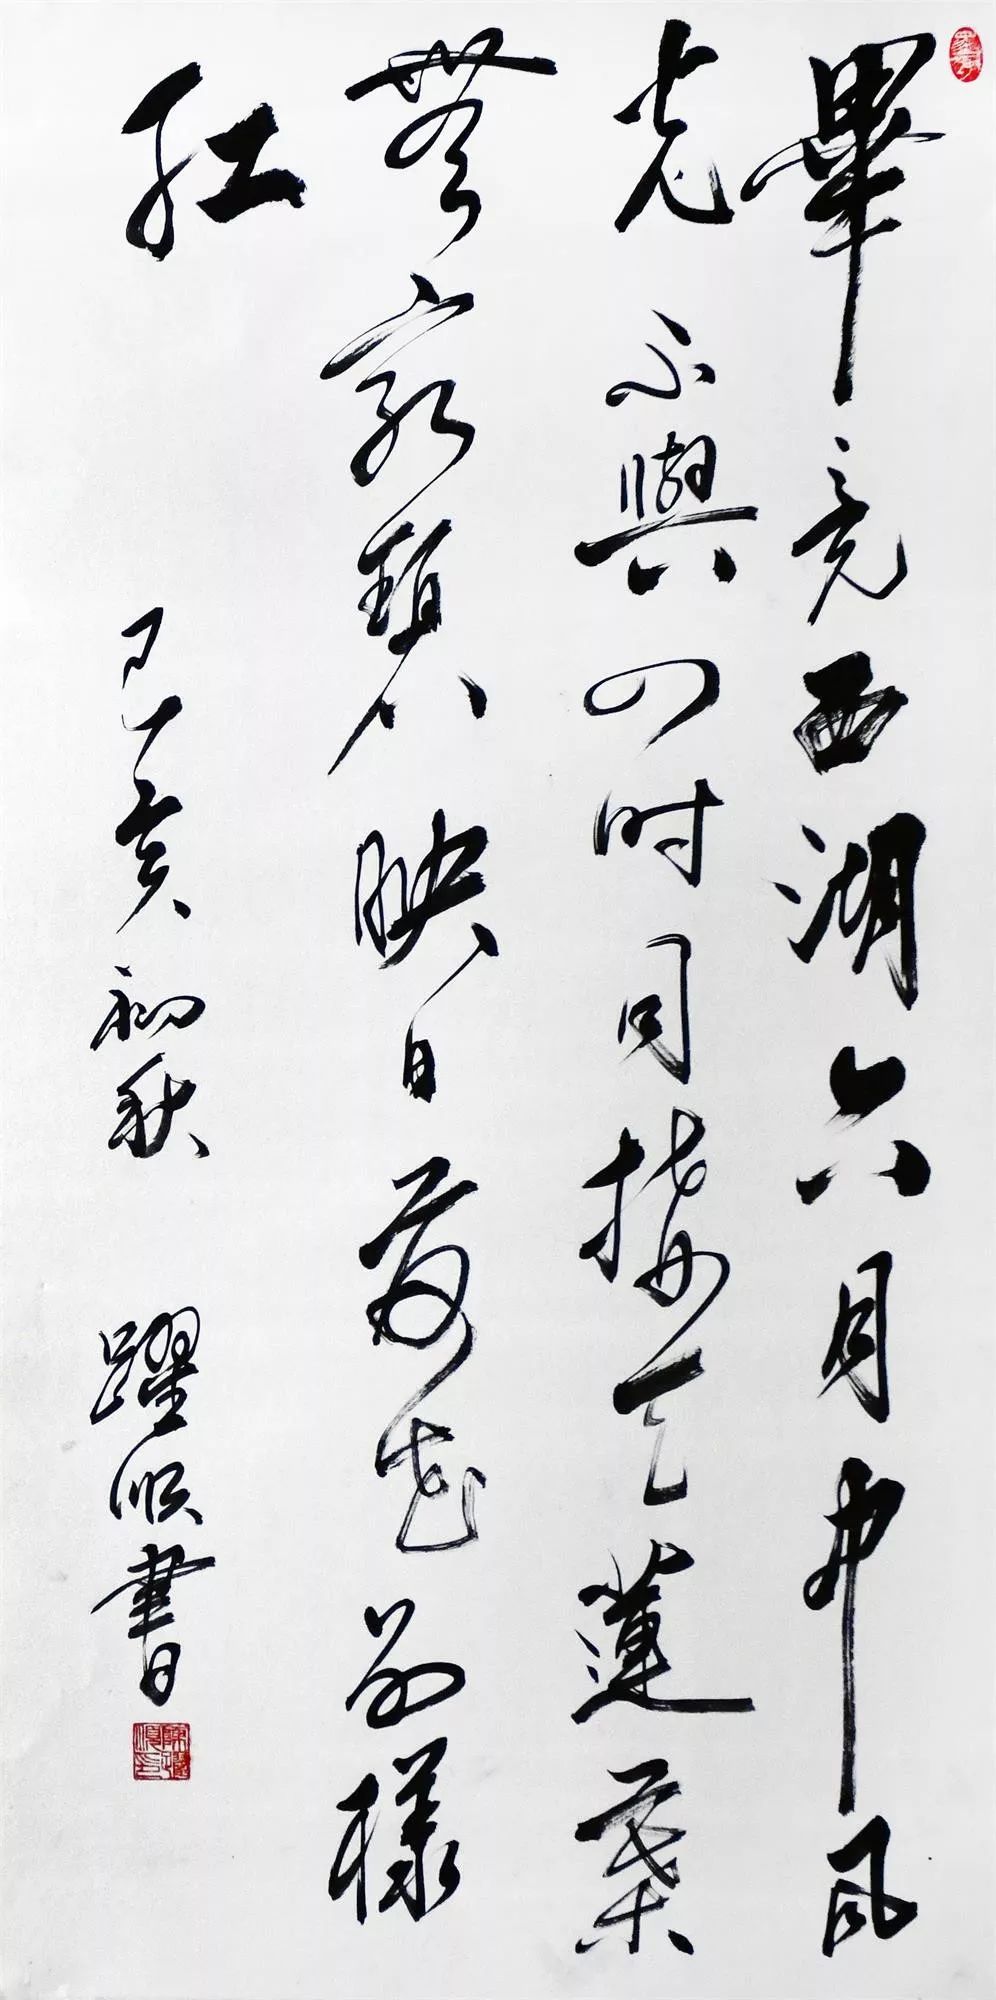 畢竟西湖六月中風
光不與四時同接天蓮葉
無窮碧映日荷花別樣
紅
己亥初秋 躍順書